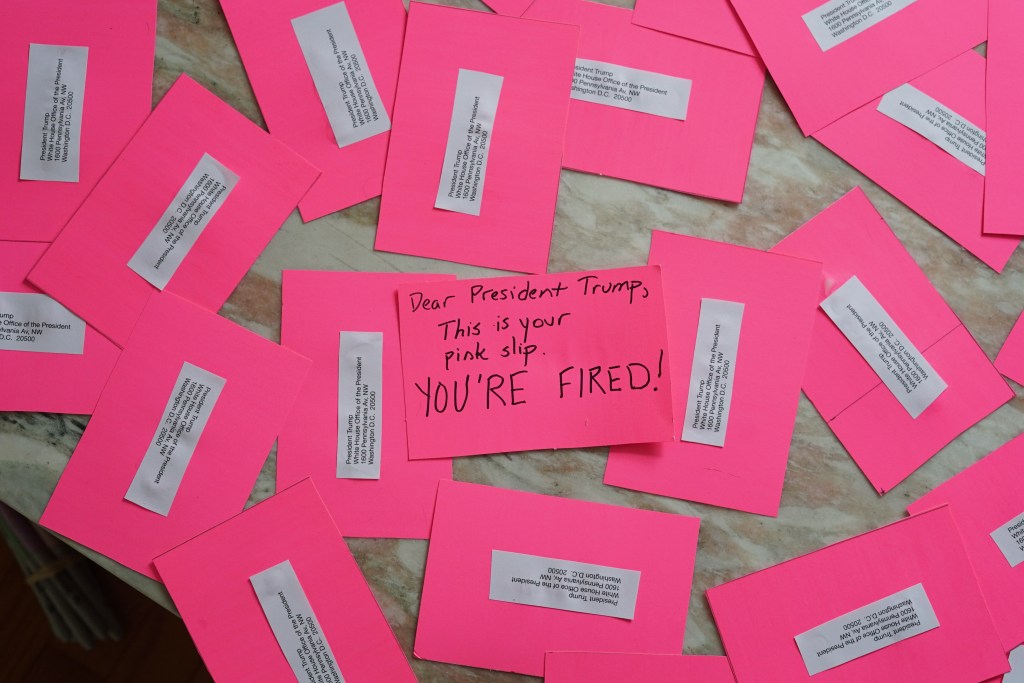 President Trump
White House Office of the President
1600 Pennsylvania Av, NW
Washington D.C. 20500
President Trump
White House Office of the President
1600 Pennsylvania Av, NW
Washington D.C. 20500
President Trump
White House Office of the President
1600 Pennsylvania Av, NW
Washington D.C. 20500
Trump
White House Office of the President
Pennsylvania Av, NW
D.C. 20500
President Trump
White House Office of the President
1600 Pennsylvania Av, NW
Washington D.C. 20500
White House Office of the President
1600 Pennsylvania Av, NW
Washington D.C. 20500
President Trump
White House Office of the President
1600 Pennsylvania Av, NW
Washington D.C. 20500
Office of the President
Av, NW
D.C. 20500
Dear President Trump,
This is your
pink slip.
YOU'RE FIRED!
President Trump
White House Office of the President
1600 Pennsylvania Av, NW
Washington D.C. 20500
President Trump
White House Office of the President
1600 Pennsylvania Av, NW
Washington D.C. 20500
President Trump
White House Office of the President
1600 Pennsylvania Av, NW
Washington D.C. 20500
President Trump
White House Office of the President
1600 Pennsylvania Av, NW
Washington D.C. 20500
President Trump
White House Office of the President
1600 Pennsylvania Av, NW
Washington D.C. 20500
President Trump
White House Office of the President
1600 Pennsylvania Av, NW
Washington D.C. 20500
President Trump
White House Office of the President
1600 Pennsylvania Av, NW
Washington D.C. 20500